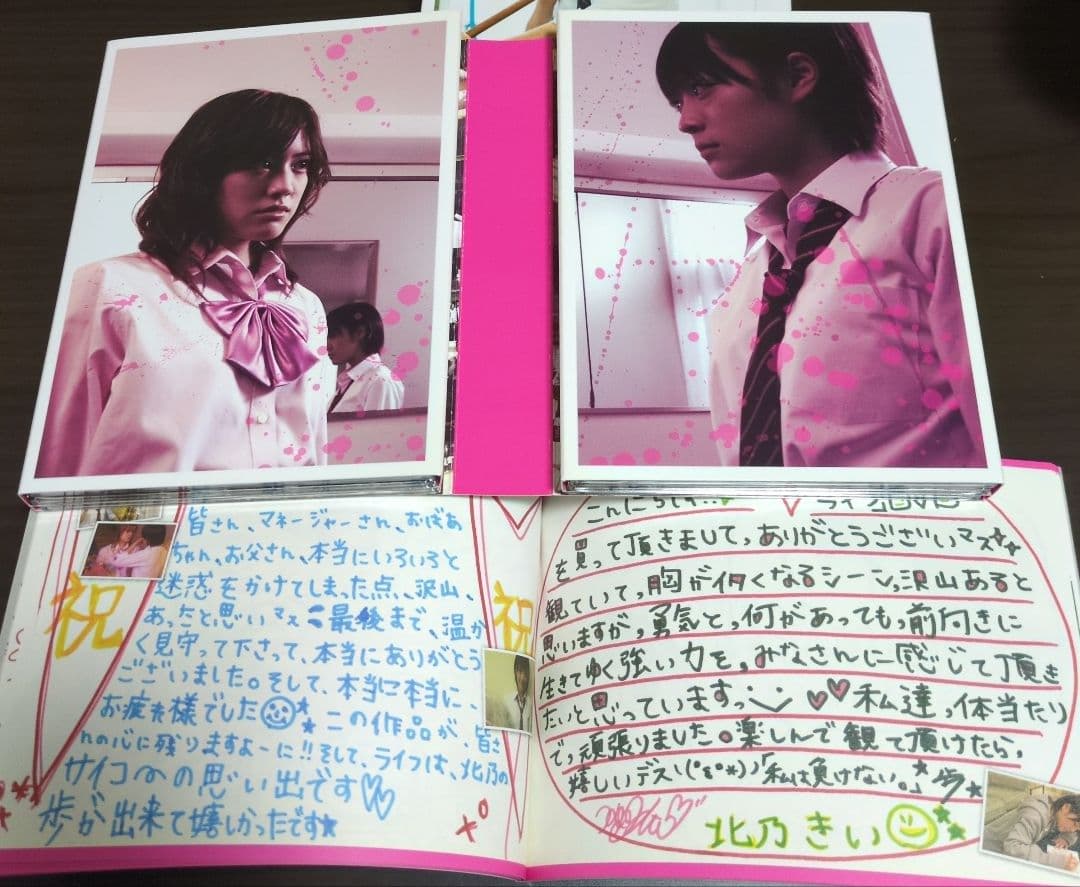 祝
皆さん、マネージャーさん、おばあ
ちゃん、お父さん、本当にいろいろと
迷惑をかけてしまった点、、沢山、
あったと思いマス 最後まで、温か
く見守って下さって、本当にありがとう
ございました。そして、本当に本当に、
お疲れ様でした☺* この作品が、皆さ
んの心に残りますよーに!!そして、ライフは、北乃の
サイコーの思い出です♡♡
歩が出来て嬉しかったです☆
祝
こんにちは
ライフ
を買って頂きまして、ありがとうございマス☆☆
観ていて、胸がイタくなるシーン、沢山あると
思いますが、勇気と、何があっても、前向きに
生きてゆく強い力を、みなさんに感じて頂き
たいと思っていますっ ♥♥私達、体当たり
で、頑張りました。楽しんで観て頂けたら、
嬉しいデス\(°ε°*)/「私は負けない。」歩☆
北乃きい☺